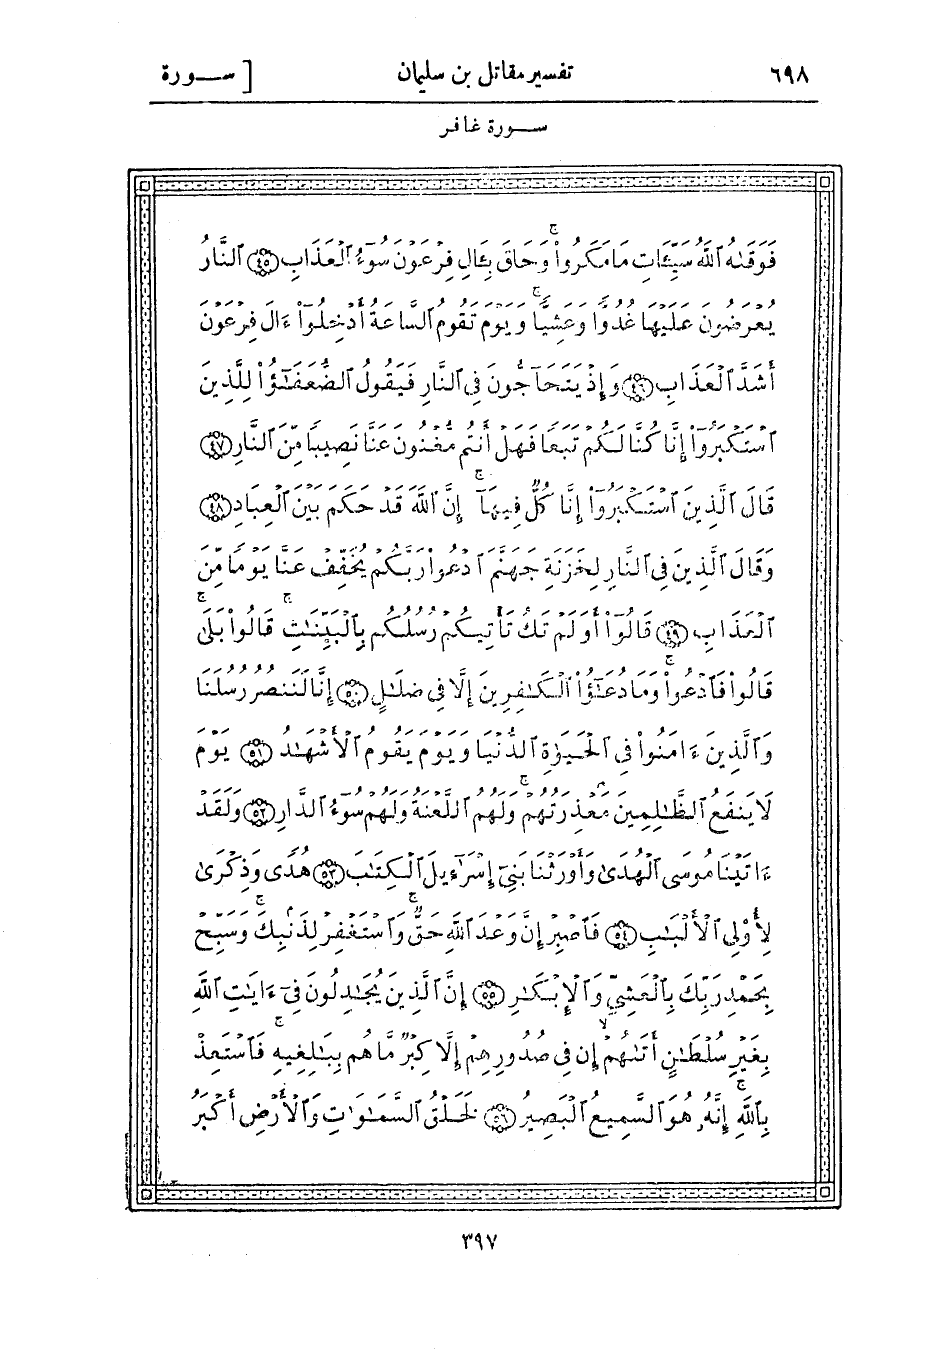 ٦٩٨ تفسير مقاتل بن سليمان [ سـورة
سـورة غافر
فَوَقَىٰهُ ٱللَّهُ سَيِّـَٔاتِ مَا مَكَرُوا۟ ۖ وَحَاقَ بِـَٔالِ فِرْعَوْنَ سُوٓءُ ٱلْعَذَابِ ﴿٤٥﴾ ٱلنَّارُ
يُعْرَضُونَ عَلَيْهَا غُدُوًّا وَعَشِيًّا ۚ وَيَوْمَ تَقُومُ ٱلسَّاعَةُ أَدْخِلُوٓا۟ ءَالَ فِرْعَوْنَ
أَشَدَّ ٱلْعَذَابِ ﴿٤٦﴾ وَإِذْ يَتَحَآجُّونَ فِى ٱلنَّارِ فَيَقُولُ ٱلضُّعَفَـٰٓؤُا۟ لِلَّذِينَ
ٱسْتَكْبَرُوٓا۟ إِنَّا كُنَّا لَكُمْ تَبَعًا فَهَلْ أَنتُم مُّغْنُونَ عَنَّا نَصِيبًا مِّنَ ٱلنَّارِ ﴿٤٧﴾
قَالَ ٱلَّذِينَ ٱسْتَكْبَرُوٓا۟ إِنَّا كُلٌّ فِيهَآ ۚ إِنَّ ٱللَّهَ قَدْ حَكَمَ بَيْنَ ٱلْعِبَادِ ﴿٤٨﴾
وَقَالَ ٱلَّذِينَ فِى ٱلنَّارِ لِخَزَنَةِ جَهَنَّمَ ٱدْعُوا۟ رَبَّكُمْ يُخَفِّفْ عَنَّا يَوْمًا مِّنَ
ٱلْعَذَابِ ﴿٤٩﴾ قَالُوٓا۟ أَوَلَمْ تَكُ تَأْتِيكُمْ رُسُلُكُم بِٱلْبَيِّنَـٰتِ ۖ قَالُوا۟ بَلَىٰ ۚ
قَالُوا۟ فَٱدْعُوا۟ ۗ وَمَا دُعَـٰٓؤُا۟ ٱلْكَـٰفِرِينَ إِلَّا فِى ضَلَـٰلٍ ﴿٥٠﴾ إِنَّا لَنَنصُرُ رُسُلَنَا
وَٱلَّذِينَ ءَامَنُوا۟ فِى ٱلْحَيَوٰةِ ٱلدُّنْيَا وَيَوْمَ يَقُومُ ٱلْأَشْهَـٰدُ ﴿٥١﴾ يَوْمَ
لَا يَنفَعُ ٱلظَّـٰلِمِينَ مَعْذِرَتُهُمْ ۖ وَلَهُمُ ٱللَّعْنَةُ وَلَهُمْ سُوٓءُ ٱلدَّارِ ﴿٥٢﴾ وَلَقَدْ
ءَاتَيْنَا مُوسَى ٱلْهُدَىٰ وَأَوْرَثْنَا بَنِىٓ إِسْرَٰٓءِيلَ ٱلْكِتَـٰبَ ﴿٥٣﴾ هُدًى وَذِكْرَىٰ
لِأُو۟لِى ٱلْأَلْبَـٰبِ ﴿٥٤﴾ فَٱصْبِرْ إِنَّ وَعْدَ ٱللَّهِ حَقٌّ ۚ وَٱسْتَغْفِرْ لِذَنۢبِكَ وَسَبِّحْ
بِحَمْدِ رَبِّكَ بِٱلْعَشِىِّ وَٱلْإِبْكَـٰرِ ﴿٥٥﴾ إِنَّ ٱلَّذِينَ يُجَـٰدِلُونَ فِىٓ ءَايَـٰتِ ٱللَّهِ
بِغَيْرِ سُلْطَـٰنٍ أَتَىٰهُمْ ۙ إِن فِى صُدُورِهِمْ إِلَّا كِبْرٌ مَّا هُم بِبَـٰلِغِيهِ ۚ فَٱسْتَعِذْ
بِٱللَّهِ ۖ إِنَّهُۥ هُوَ ٱلسَّمِيعُ ٱلْبَصِيرُ ﴿٥٦﴾ لَخَلْقُ ٱلسَّمَـٰوَٰتِ وَٱلْأَرْضِ أَكْبَرُ
٣٩٧